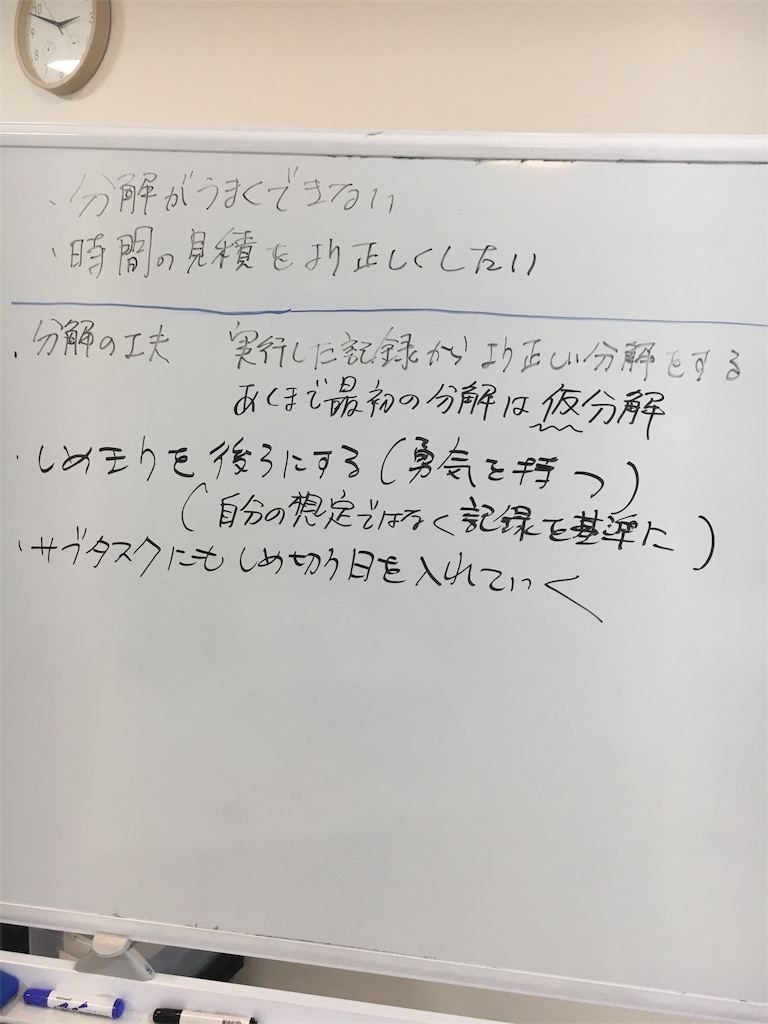 ・分解がうまくできない
・時間の見積をより正しくしたい
・分解の工夫 実行した記録からより正しい分解をする
あくまで最初の分解は仮分解
・しめきりを後ろにする(勇気を持つ)
(自分の想定ではなく記録を基準に)
・サブタスクにもしめ切り日を入れていく